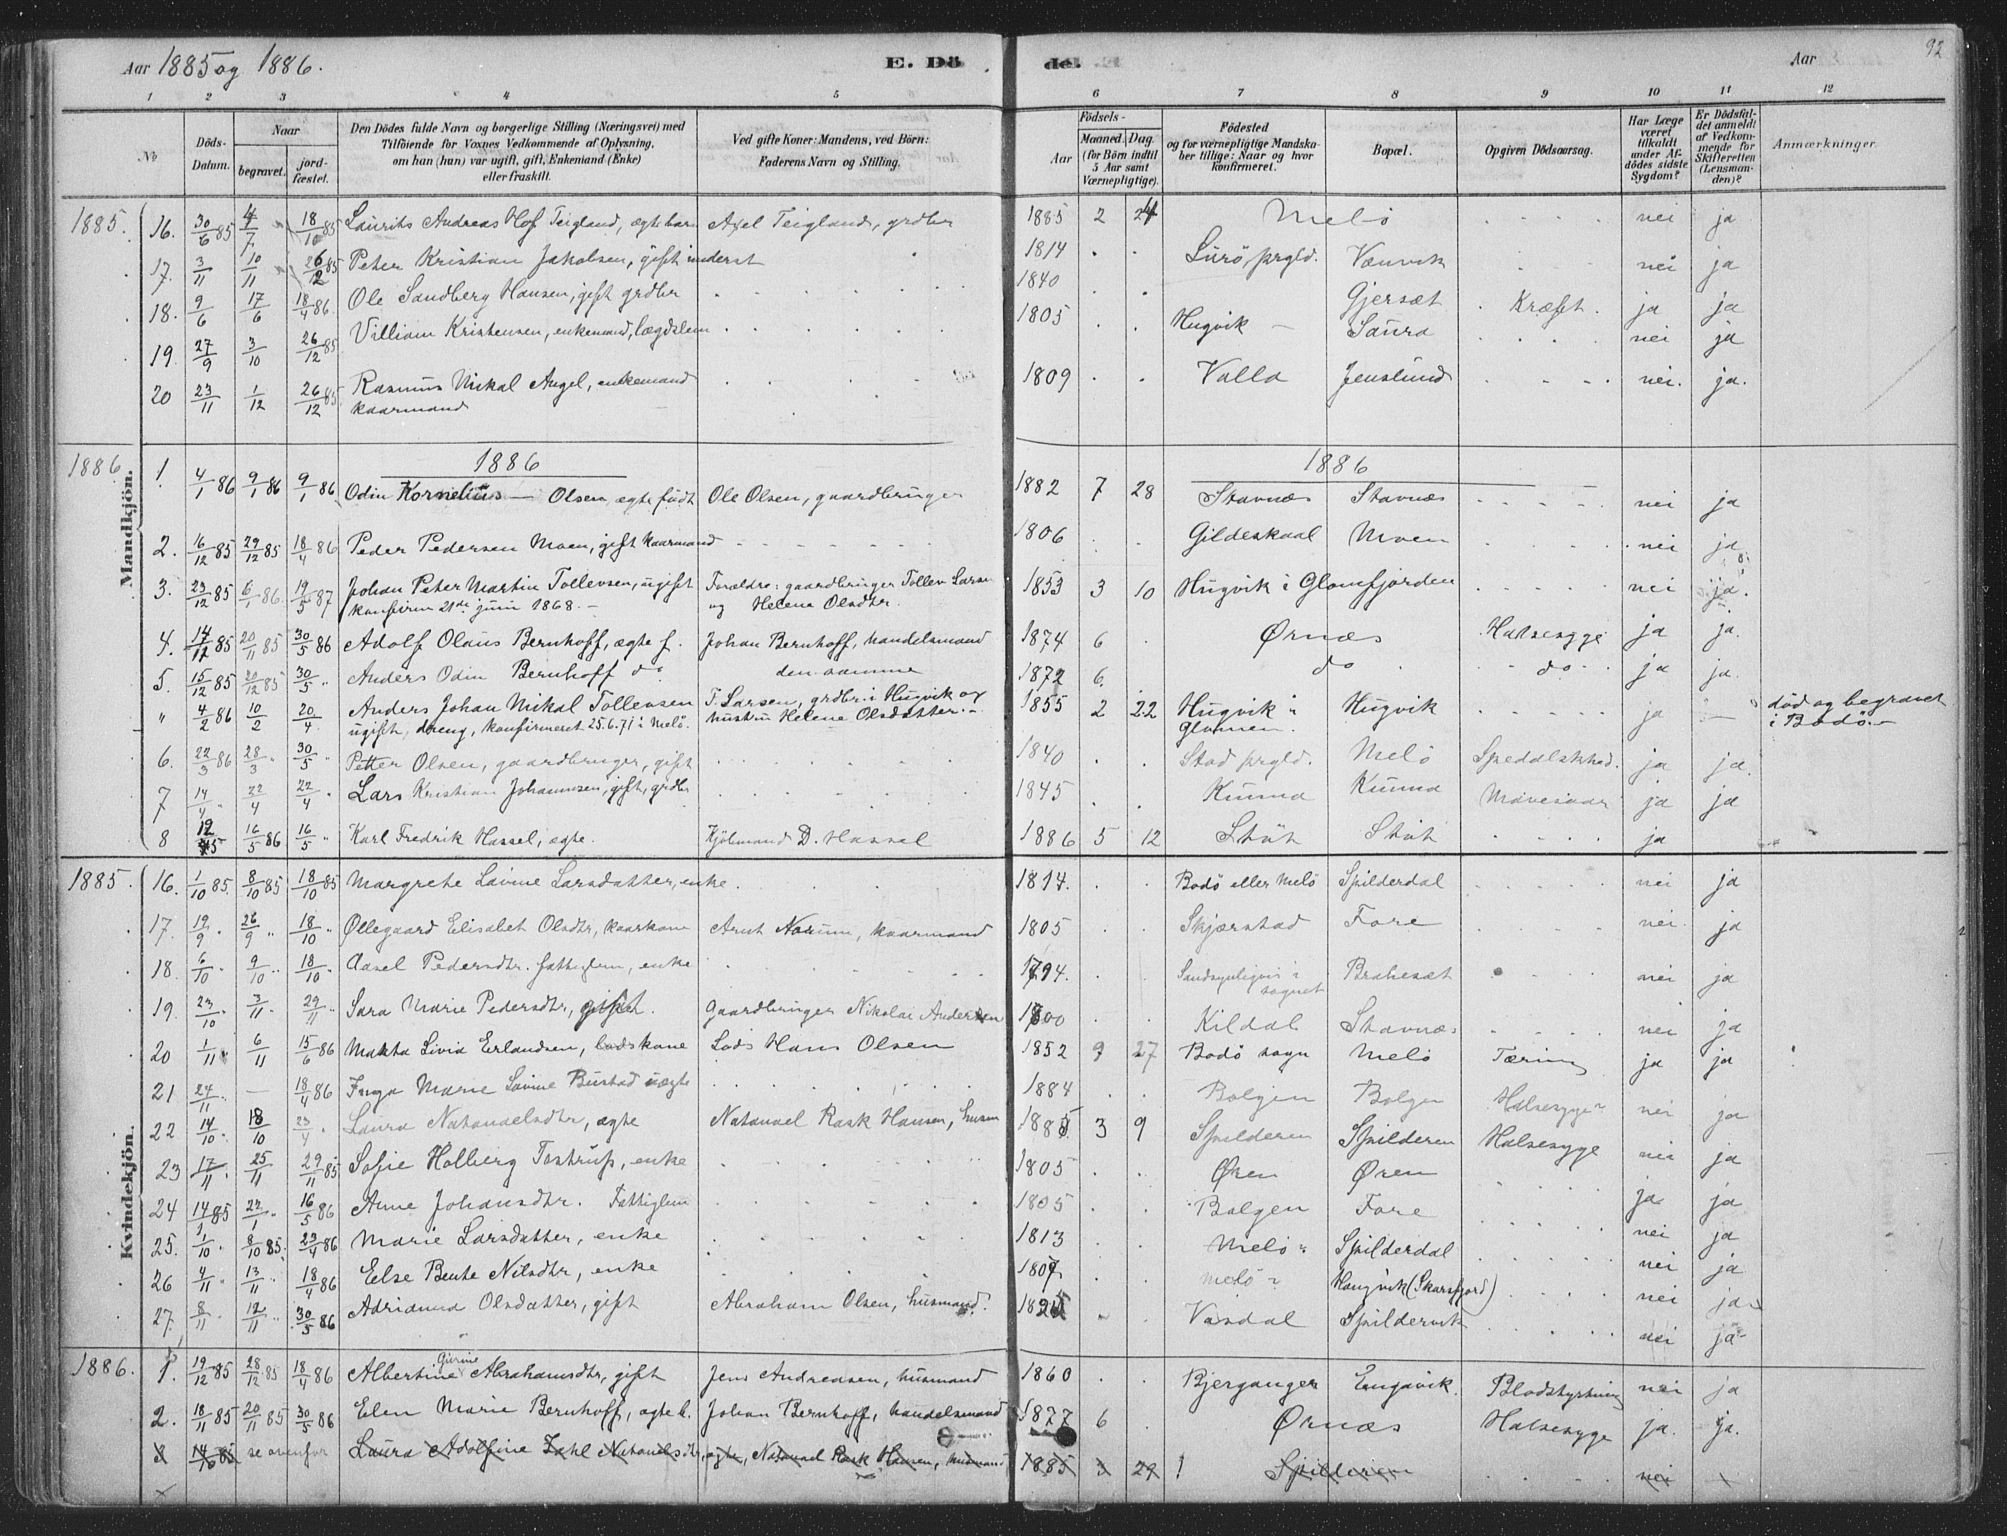 Aar 1885 og 1886. E. Dö
de. Aar 92
1 2 3 4 5 6 7 8 9 10 11 12
No
Döds-Datum.
Naar
begravet. jord-fæstet.
Den Dödes fulde Navn og borgerlige Stilling (Næringsvei) med
Tilföiende for Voxnes Vedkommende af Oplysning,
om han (hun) var ugift, gift, Enkemand (Enke)
eller fraskilt.
Ved gifte Koner: Mandens, ved Börn:
Faderens Navn og Stilling.
Födsels-
Aar Maaned. Dag.
(for Börn indtil
5 Aar samt
Værnepligtige).
Födested
og for værnepligtige Mandska-
ber tillige: Naar og hvor
konfirmeret.
Bopæl.
Opgiven Dödsaarsag.
Har Læge
været
tilkaldt
under Af-
dödes sidste
Sygdom?
Er Dödsfal-
det anmeldt
af Vedkom-
mende for
Skifteretten
(Lensman-
den)?
Anmærkninger.
Mandkjön.
1885. 16. 30/6 85 4/7 18/10 85 Laurits Andreas Hof Teigland, ægte barn Axel Teigland, grdbr 1885 2 24 Melö nei ja
17. 3/11 10/11 26/12 85 Peter Kristian Jakobsen, gift inderst 1814 Lurö prgld. Vænvik nei ja
18. 9/6 17/6 18/4 86 Ole Sandberg Hansen, gift grdbr 1840 Gjersæt Kræft. ja ja
19. 27/9 3/10 26/12 85 Villiam Kristensen, enkemand, lægdslem 1805 Hugvik — Saura nei ja
20 23/11 1/12 26/12 85 Rasmus Mikal Angel, enkemand
kaarmand 1809 Valla Jenslund nei. ja.
1886 1886
1886. 1. 4/1 86 9/1 86 9/1 86 Odin Kornelius — Olsen, ægte født Ole Olsen, gaardbruger 1882 7 28 Stavnæs Stavnæs nei ja
2. 16/12 85 29/12 85 18/4 86 Peder Pedersen Moen, gift kaarmand 1806 Gildeskaal Moen nei ja
3. 23/12 85 6/1 86. 19/5 87 Johan Peter Martin Tollevsen, ugift Forældre: gaardbruger Tollev Larsen 1853 3 10 Hugvik i Glomfjorden nei ja.
konfirm 21de juni 1868. — og Helena Olsdtr.
4. 14/12 85 20/11 85 30/5 86 Adolf Olaus Bernhoff, ægte f. Johan Bernhoff, handelsmand 1874 6 Ørnæs Halsesyge ja ja.
5. 15/12 85 20/12 85 30/5 " Anders Odin Bernhoff do den samme 1872 6. do do ja ja.
" 4/2 86 10/2 20/4 Anders Johan Mikal Tollevsen T. Larsen, grdbr. i Hugvik og 1855 2 22 Hugvik i Hugvik ja — død og begravet
ugift, dreng, konfirmeret 25.6.71 i Melö. hustru Helene Olsdatter. Glommen. i Bodö. —
6. 22/3 86 28/3 " 30/5 " Petter Olsen, gaardbruger, gift 1840 Stod prgld. Melö Spedalskhed. ja ja.
7 14/4 " 22/4 22/4 " Lars Kristian Johannesen, gift, grdbr 1845 Kunna Kunna Mavesaar ja ja
8 12/5 16/5 86 16/5 " Karl Fredrik Hassel, ægte. Kjöbmand D. Hassel 1886 5 12 Stöt Stöt ja
Kvindekjön.
1885. 16. 1/10 85. 8/10 85 18/10 85 Margrete Lavine Larsdatter, enke 1814. Bodö eller Melö Spilderdal nei ja
17. 19/9 " 26/9 " 18/10 " Øllegaard Elisabet Olsdtr, kaarkone Arnt Norum, kaarmand 1805 Skjærstad Fore nei ja
18. 6/10 " 9/10 " 18/10 " Aasel Pedersdtr. fattiglem, enke 1794. Sandsynligvis i
sognet Brahesæt nei ja
19. 23/10 " 3/11 " 29/11 " Sara Marie Pedersdtr, gift. Gaardbruger Nikolai Andersen 1800 Kildal Stavnæs nei ja
20 1/11 " 6/11 15/6 86 Makta Livia Erlandsen, lodskone Lods Hans Olsen 1852 9 27 Bodö sogn Melö Tæring ja ja
21 24/11 " — 18/4 86 Inga Marie Lovine Bustad uægte 1884 Bolgen Bolgen Halsesyge nei ja
22 14/10 " 18/10 23/4 " Laura Natanaelsdtr, ægte Natanael Rask Hansen, husm 1885 3 9 Spilderen Spilderen Halsesyge nei ja
23 17/11 " 25/11 29/11 85 Sofie Holberg Tostrup, enke 1805 Øren Øren ja ja
24 14/1 85 22/1 " 16/5 86 Anne Johansdtr. Fattiglem 1805 Bolgen Fore nei ja
25. 1/10 " 8/10 85. 23/4 86 Marie Larsdatter, enke 1813 Melö Spilderdal nei ja
26 4/11 " 13/11 " 18/4 86 Else Bente Nilsdtr, enke 1807 Melö Haugvik (Skarsfjord) nei ja
27. 8/11 " 12/11 " 30/5 86 Adrianna Olsdatter, gift Abraham Olsen, husmand. Vasdal Spildervik nei ja
1886. 1. 19/12 85 28/12 85 18/4 86 Albertine Gurine Abrahamsdtr, gift Jens Andreasen, husmand 1860 Bjerganger Engavik. Blodstyrtning nei ja
2. 18/11 85 20/11 85 30/5 86 Elen Marie Bernhoff, ægte b. Johan Bernhoff, handelsmand 1877 6 Ørnæs Halsesyge ja. ja.
3 14/10 85 se ovenfor Laura Adolfine Dahl Natanaelsdtr, ægte, Natanael Rask Hansen, husmand 1885 3 29 Spilderen nei